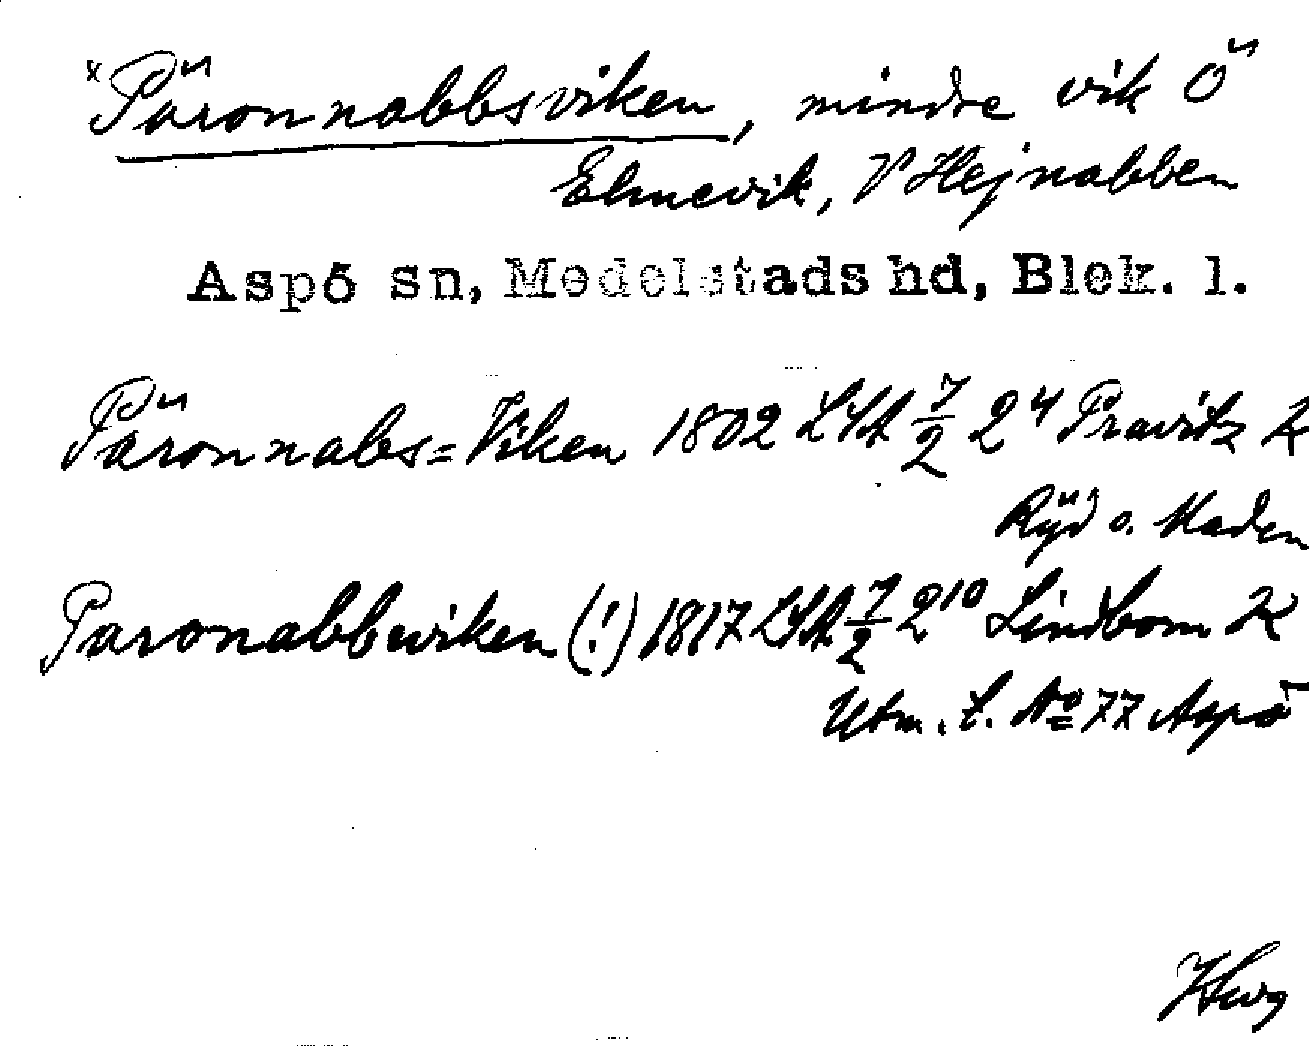 x Päronnabbsviken, mindre vik Ö
Elmevik, V Hejnabben
Aspö sn, Medelstads hd, Blek. l.
Päronnabs=Viken 1802 LSA 7/2 2⁴ Pravitz K
Ryd o. Maden
Paronabbwiken (!) 1817 LSA 7/2 2¹⁰ Lindbom K
Utm. t. No 77 Aspö